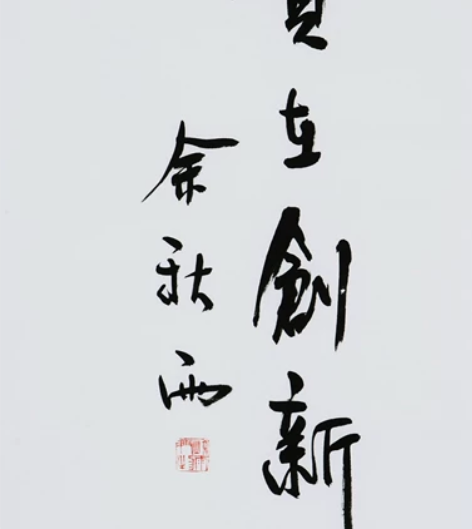 在創新
余秋雨